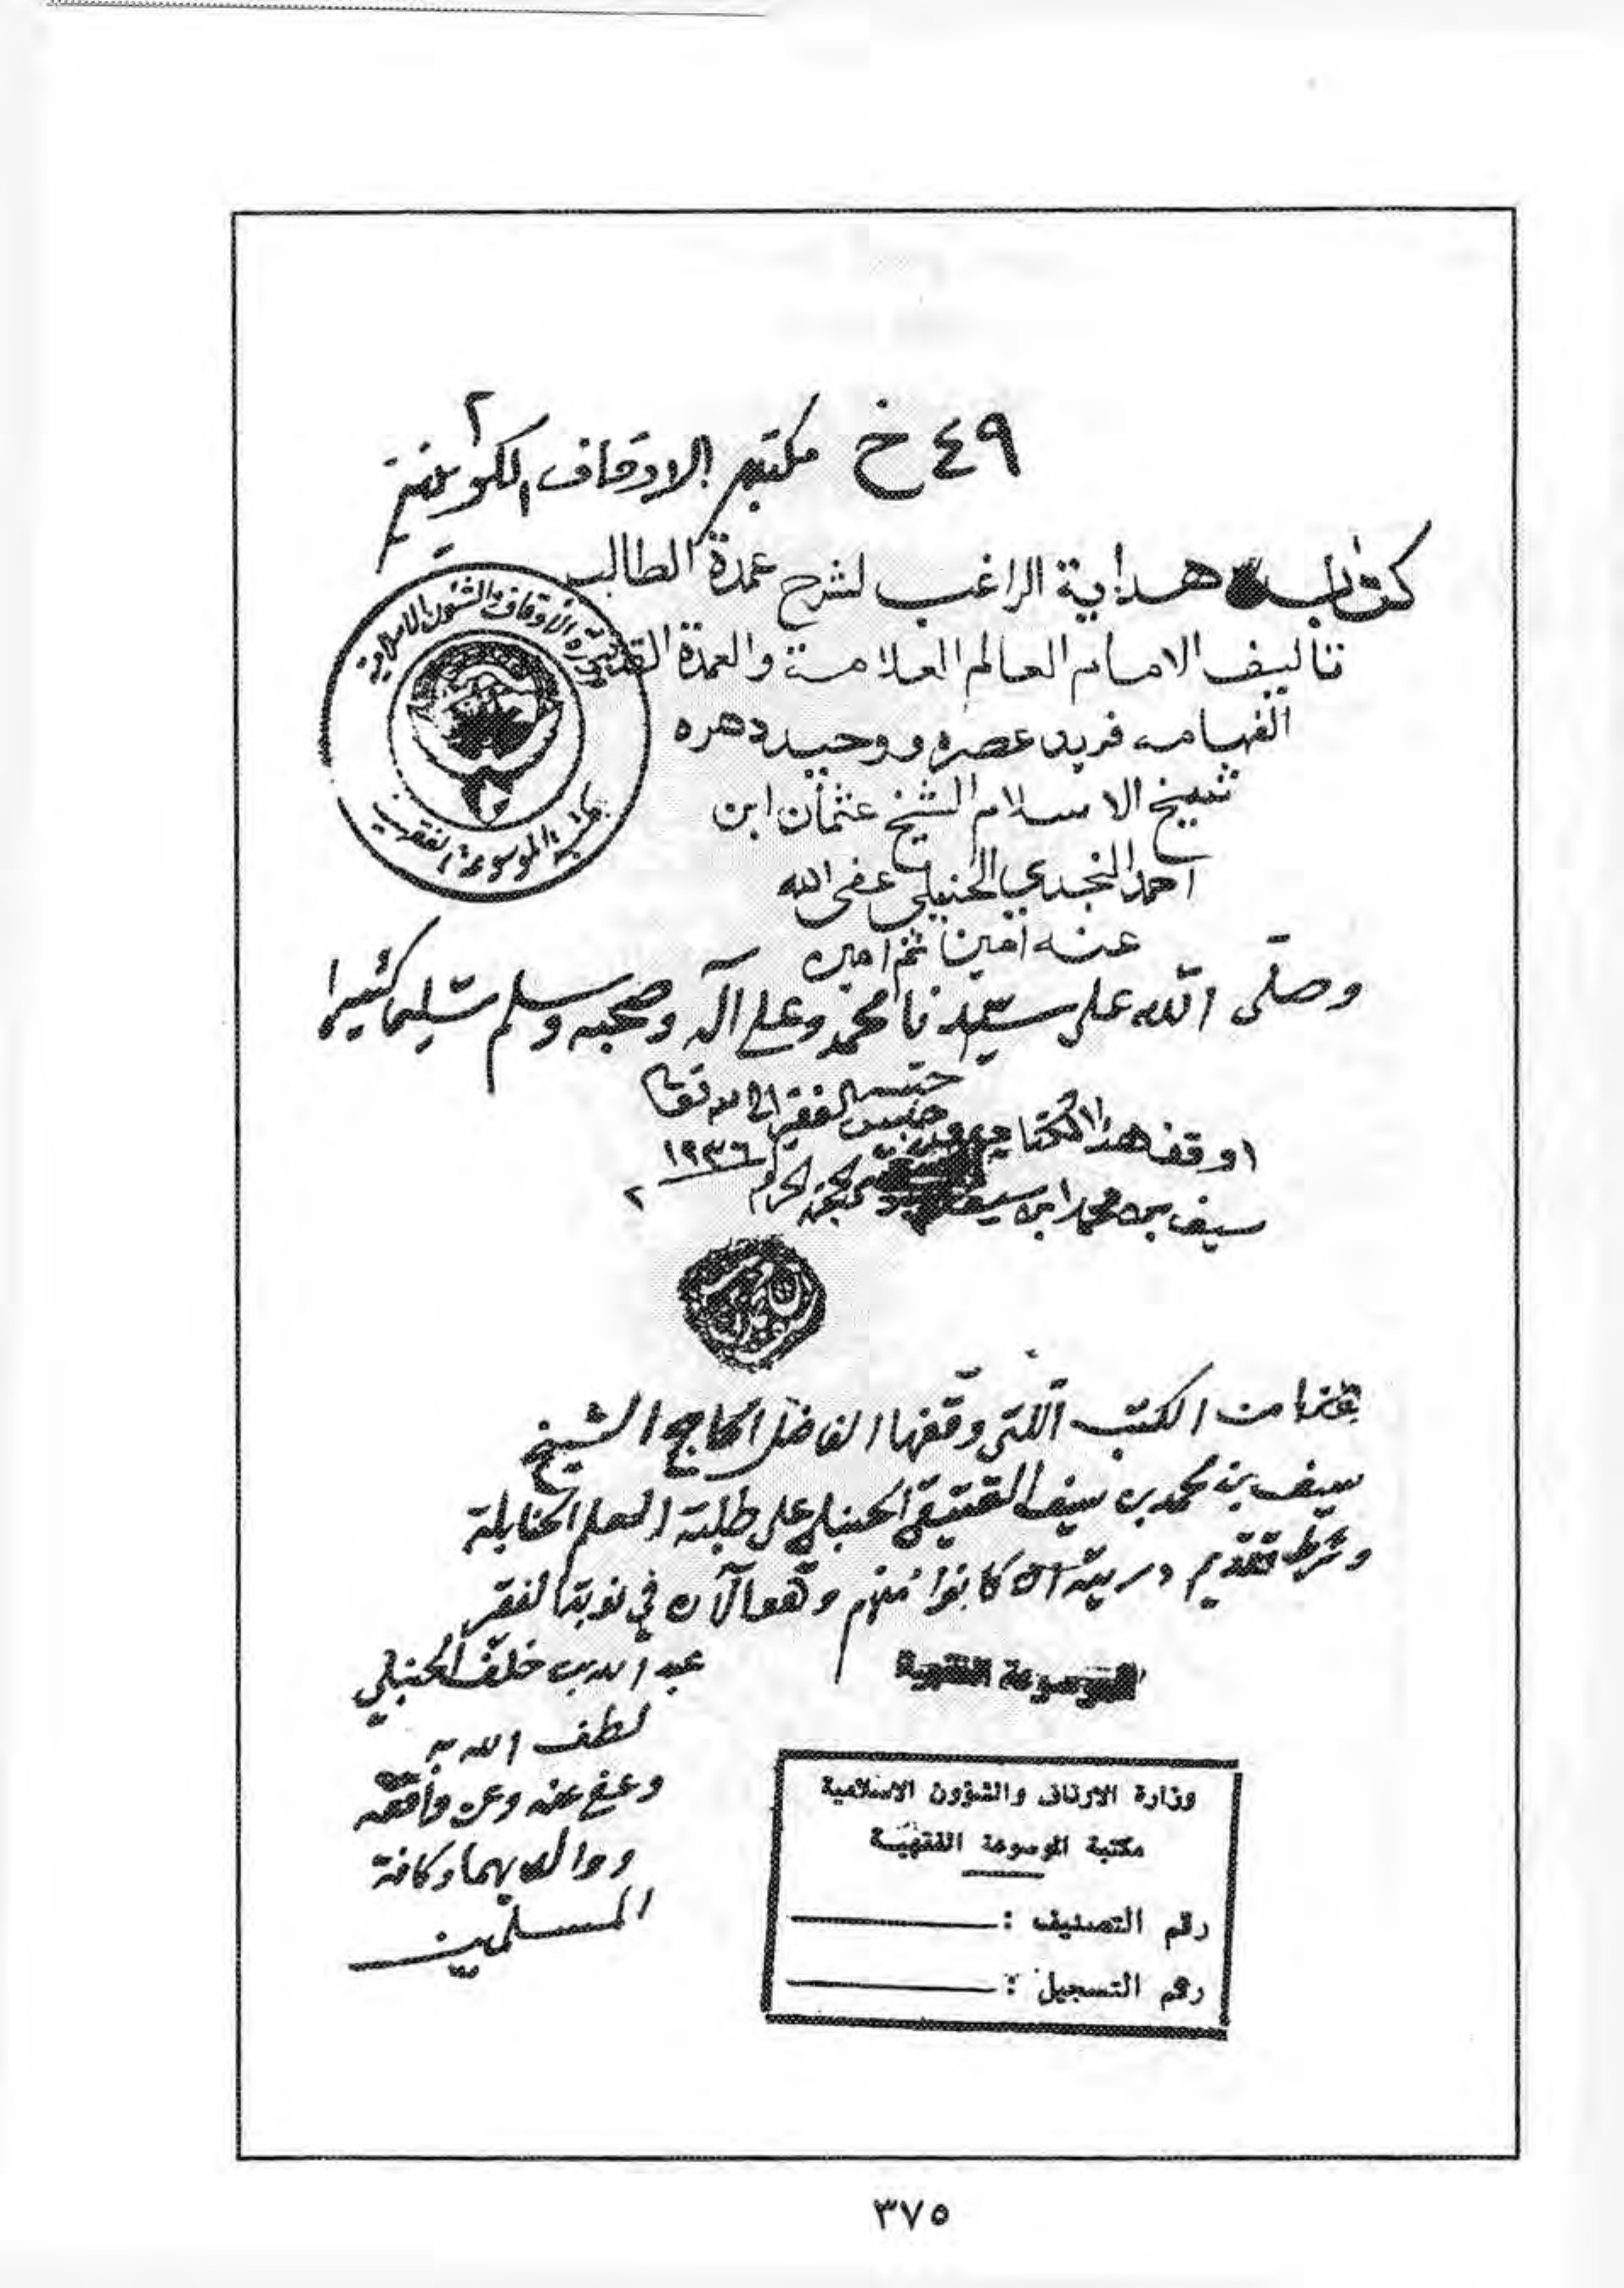 ٢
٤٩ خ مكتبة الاوقاف الكويتية
كتاب هداية الراغب لشرح عمدة الطالب
تأليف الامام العالم العلامة والعمدة القدوة
الفهامه فريد عصره ووحيد دهره
شيخ الاسلام الشيخ عثمان ابن
احمد النجدي الحنبلي عفى الله
عنه امين ثم امين
وصلى الله على سيدنا محمد وعلى آله وصحبه وسلم تسليما كثيرا
وزارة الأوقاف والشئون الاسلامية
مكتبة الموسوعة الفقهية
اوقف هذا الكتاب الفقير الى الله تعا
سيف بن محمد ابن سيف الحجة الحرم ١٩٣٦
٢
هذا من الكتب اللتي وقفها الفاضل الحاج الشيخ
سيف بن محمد بن سيف العتيقي الحنبلي على طلبة العلم الحنابلة
وشرط تقديم ذريته ان كانوا منهم وهو الآن في نوبة الفقر
عبد الله بن خلف الحنبلي
لطف الله به
وعفى عنه وعن واقفه
ووالديهما وكافة
المسلمين
الموسوعة الفقهية
وزارة الاوقاف والشؤون الاسلامية
مكتبة الموسوعة الفقهية
رقم التصنيف :
رقم التسجيل :
٣٧٥